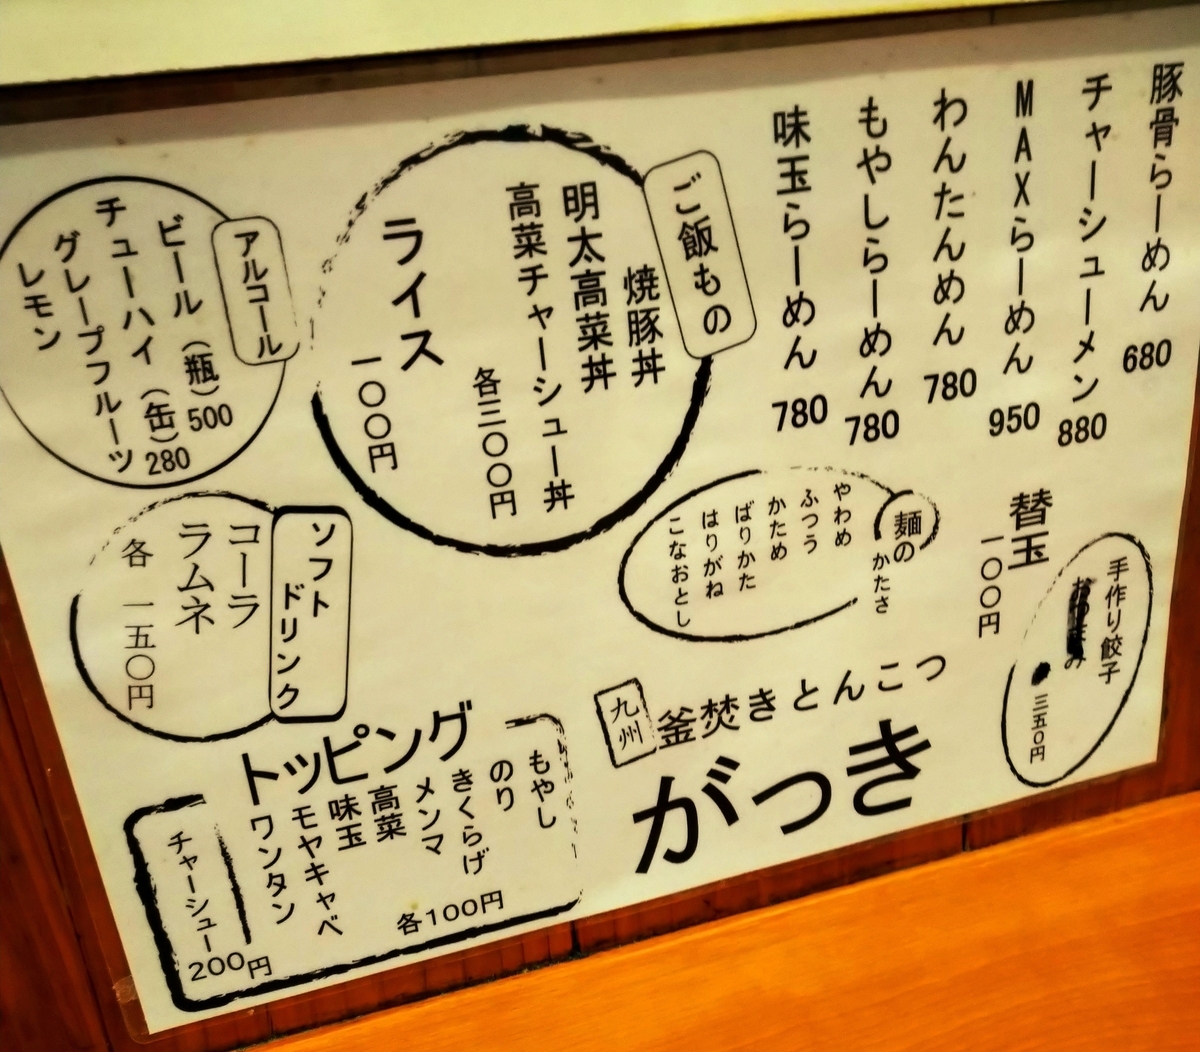 豚骨らーめん 680
チャーシューメン 880
MAXらーめん 950
わんたんめん 780
もやしらーめん 780
味玉らーめん 780
替玉
一〇〇円
手作り餃子
三五〇円
麺の
かたさ
やわめ
ふつう
かため
ばりかた
はりがね
こなおとし
ご飯もの
焼豚丼
明太高菜丼
高菜チャーシュー丼
各三〇〇円
ライス
一〇〇円
アルコール
ビール(瓶)500
チューハイ(缶)280
グレープフルーツ
レモン
ソフト
ドリンク
コーラ
ラムネ
各 一五〇円
九州
釜焚きとんこつ
がっき
トッピング
もやし
のり
きくらげ
メンマ
高菜
味玉
モヤキャベ
ワンタン
各100円
チャーシュー
200円